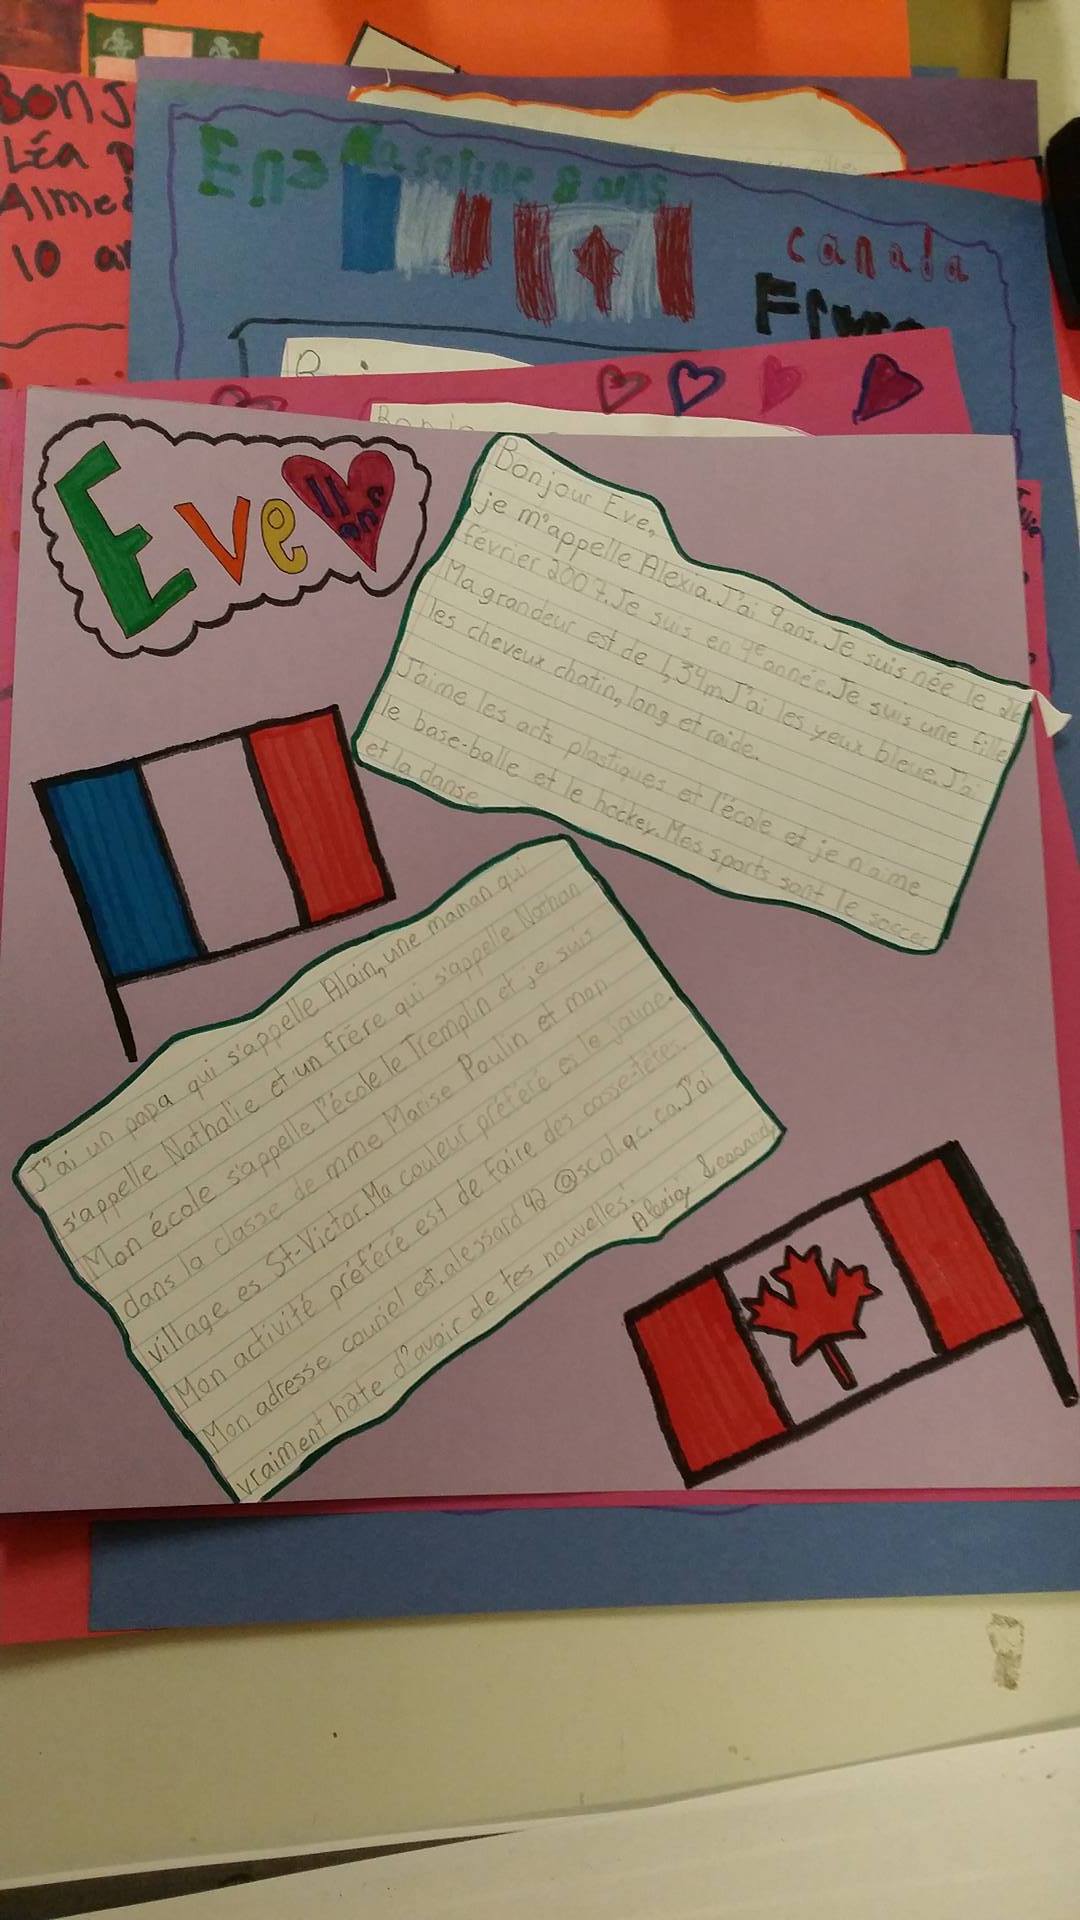 Bonj
Léa
Alme
10 an
Ena Vasoline 8 ans
canada
Bonjo
Eve
11 ans
Bonjour Eve,
je m'appelle Alexia. J'ai 9 ans. Je suis née le 26
février 2007. Je suis en 4e année. Je suis une fille
Ma grandeur est de 1,34m J'ai les yeux bleue. J'ai
les cheveux chatin, long et raide.
J'aime les arts plastiques et l'école et je n'aime
le base-balle et le hockey. Mes sports sont le soccer
et la danse
J'ai un papa qui s'appelle Alain, une maman qui
s'appelle Nathalie et un frère qui s'appelle Nathan
Mon école s'appelle l'école le Tremplin et je suis
dans la classe de mme Marise Poulin et mon
village es St-Victor. Ma couleur préféré es le jaune.
Mon activité préféré est de faire des casse-têtes.
Mon adresse couriel est. alessard42@scol.qc.ca. J'ai
vraiment hate d'avoir de tes nouvelles!
Alexia Lessard